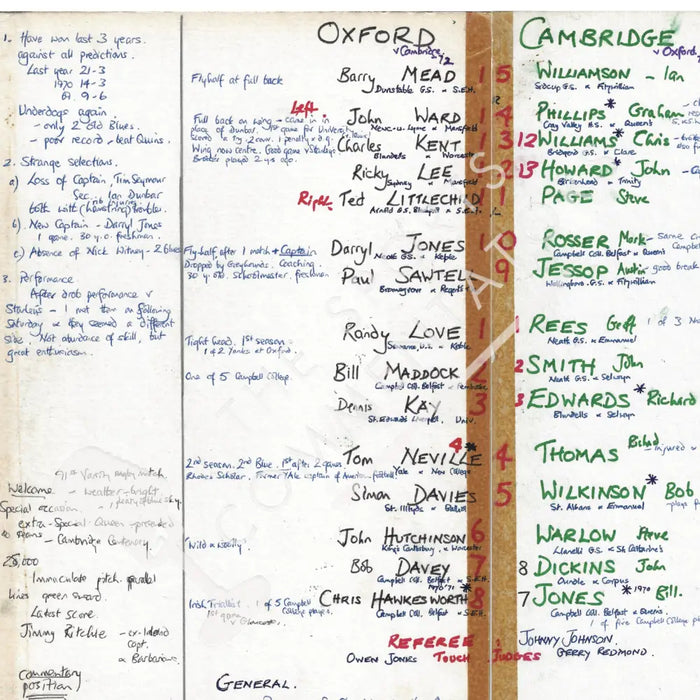 OXFORD
v Cambridge
CAMBRIDGE
v Oxford
1. Have won last 3 years.
against all predictions.
Last year 21-3
1970 14-3
69. 9-6
Underdogs again.
- only 2 old Blues.
- poor record - beat Quins.
2. Strange selections.
a) Loss of Captain, Tim Seymour
Sec. Ian Dunbar
both with (hamstring) troubles.
b) New Captain - Darryl Jones
1 game. 30 y.o. freshman.
c) Absence of Nick Witney - 2 blues
3. Performance
After drab performance v
Stanleys - I met them on following
Saturday & they seemed a different
side. Not abundance of skill, but
great enthusiasm.
91st Varsity rugby match.
Welcome - weather - bright
Special occasion.
extra-Special - Queen - presented
to teams - Cambridge Centenary.
Immaculate pitch. parallel
lines green sward.
Latest Score.
Jimmy Ritchie - ex-
Capt.
& Barbarians.
commentary
position
Flyhalf at full back
Barry MEAD 15
Dunstable G.S. & S.E.H.
Left.
Full back on wing - came in in
place of Dunbar. 1st game for University
John WARD 14
Newc-u-Lyme & Mansfield
Wing now centre. Good game v Stanleys
Brother played 2 yrs ago.
Charles KENT 13
Blundells & Worcester
Ricky LEE 12
Sydney & Mansfield
Right. Ted LITTLECHILD 11
Arnold G.S. Blackpool & S.E.H.
Flyhalf after 1 match & Captain
Dropped by Greyhounds. Coaching.
30 y. old. Schoolmaster. freshman
Darryl JONES 10
Neath G.S. & Keble
Paul SAWTELL 9
Bromsgrove &
Tight head. 1st season.
1 & 2 Yanks at Oxford.
Randy LOVE 1
Sewanee, U.S. & Keble
One of 5 Campbell College.
Bill MADDOCK 2
Campbell Coll. Belfast & Pembroke
Dennis KAY 3
St. Edwards Liverpool. Univ.
2nd season. 2nd Blue. 1st after 2 games.
Rhodes Scholar. Former Yale captain of American football
Tom NEVILLE 4
Yale & New College
Simon DAVIES 5
"Wild & woolly"
John HUTCHINSON 6
Kings Canterbury. & Worcester
Bob DAVEY 7
Campbell Coll. Belfast & S.E.H.
Irish Triallist. 1 of 5 Campbell
College players.
1st game
v Gloucester.
1970 '71
CHRIS HAWKESWORTH 8
Campbell Coll. Belfast & S.E.H.
WILLIAMSON - Ian
Sidcup G.S. & Fitzwilliam
PHILLIPS* Graham
Grey Valley G.S. & Queen's
12 WILLIAMS* Chris
Bridgend G.S. & Clare
13 HOWARD* John
Birkenhead & Trinity
PAGE Steve
ROSSER Mark - same
Campbell Coll. Belfast & Queens
JESSOP Austin - good break
Wallingford. G.S. & Fitzwilliam
1 REES Geoff 1 of 3
Neath G.S. & Emmanuel
2 SMITH John
Neath G.S. & Selwyn
3 EDWARDS* Richard
Blundells & Selwyn
THOMAS - injured
WILKINSON* Bob
St. Albans & Emmanuel
WARLOW Steve
Llanelli G.S. & St. Catharine's
8 DICKINS John
Oundle & Corpus
7 JONES *1970 Bill.
Campbell Coll. Belfast & Queens.
1 of five Campbell College
REFEREE JOHNNY JOHNSON.
OWEN JONES TOUCH JUDGES GERRY REDMOND.
GENERAL.